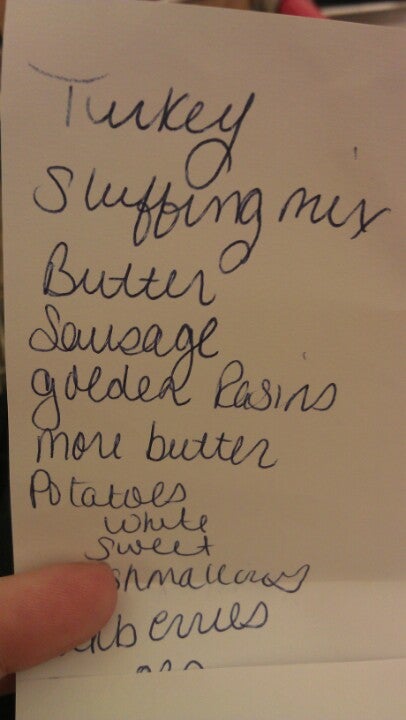 Turkey
Stuffing mix
Butter
Sausage
golden Rasins
more butter
Potatoes
White
Sweet
shmallows
berries